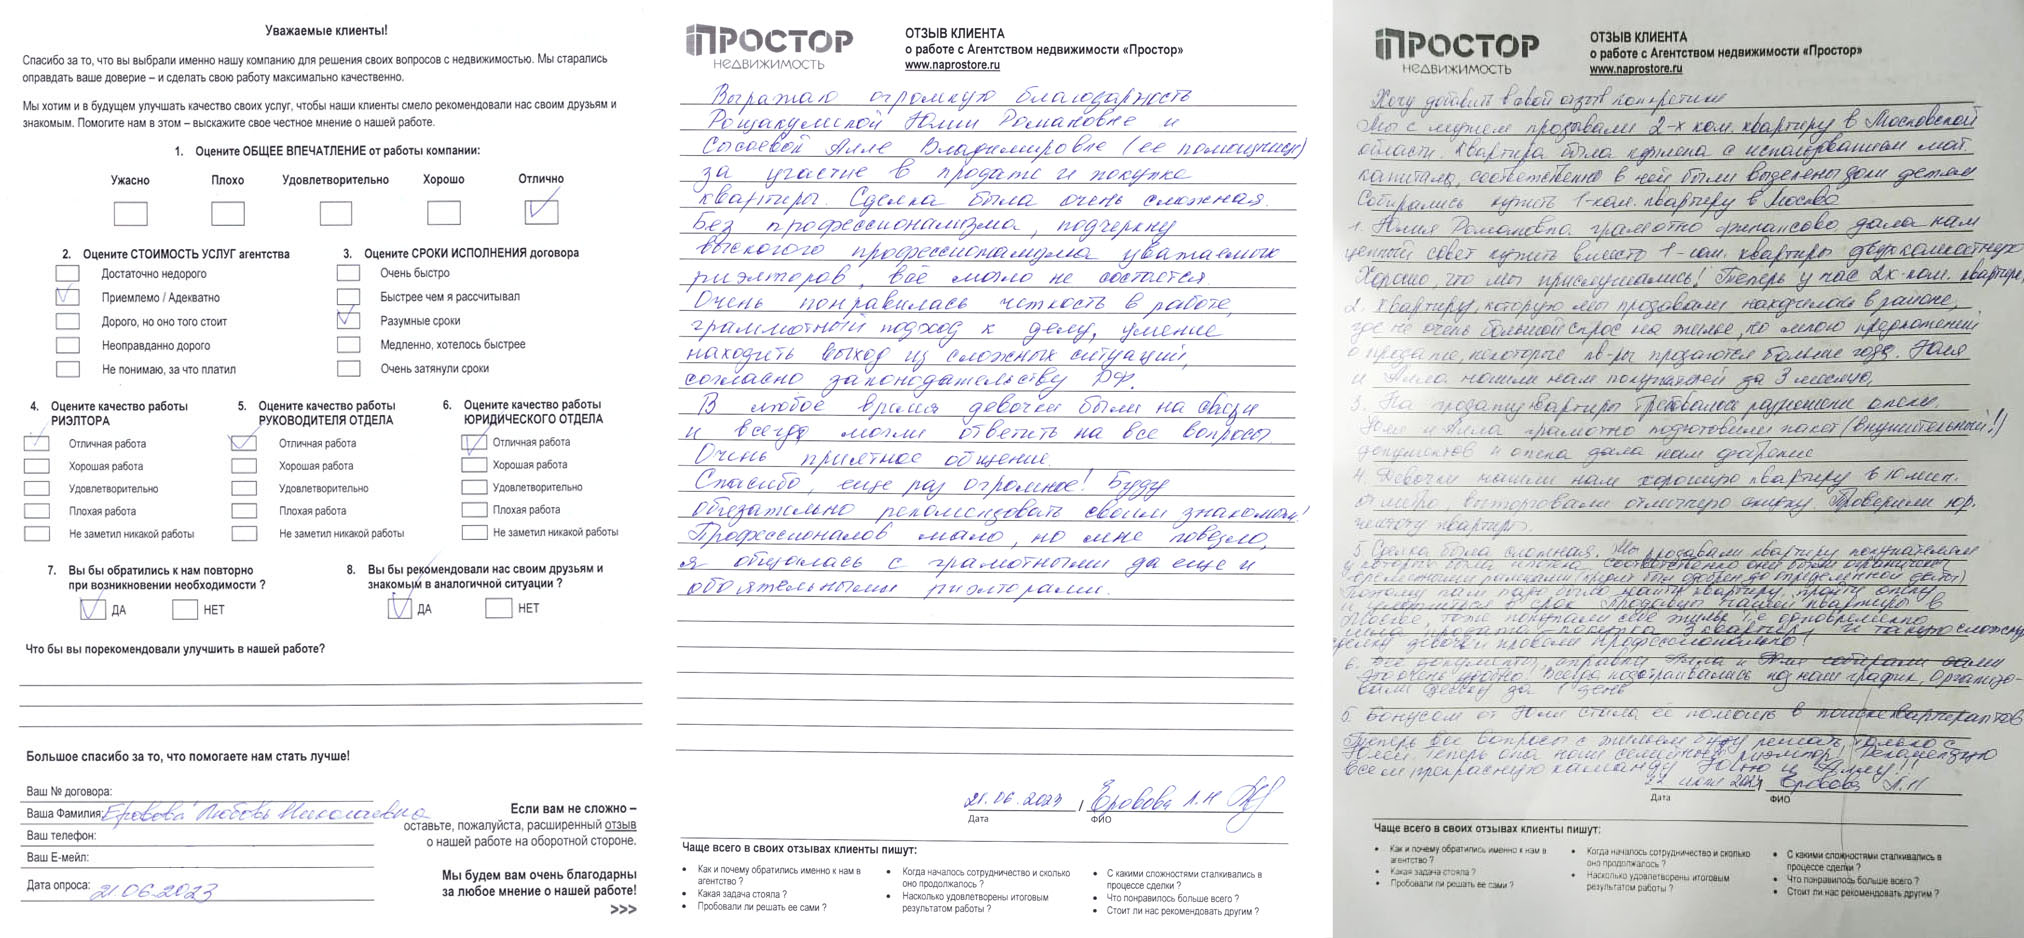 Уважаемые клиенты!
Спасибо за то, что вы выбрали именно нашу компанию для решения своих вопросов с недвижимостью. Мы старались
оправдать ваше доверие – и сделать свою работу максимально качественно.
Мы хотим и в будущем улучшать качество своих услуг, чтобы наши клиенты смело рекомендовали нас своим друзьям и
знакомым. Помогите нам в этом – выскажите свое честное мнение о нашей работе.
1. Оцените ОБЩЕЕ ВПЕЧАТЛЕНИЕ от работы компании:
Ужасно Плохо Удовлетворительно Хорошо Отлично
2. Оцените СТОИМОСТЬ УСЛУГ агентства
Достаточно недорого
Приемлемо / Адекватно
Дорого, но оно того стоит
Неоправданно дорого
Не понимаю, за что платил
3. Оцените СРОКИ ИСПОЛНЕНИЯ договора
Очень быстро
Быстрее чем я рассчитывал
Разумные сроки
Медленно, хотелось быстрее
Очень затянули сроки
4. Оцените качество работы
РИЭЛТОРА
Отличная работа
Хорошая работа
Удовлетворительно
Плохая работа
Не заметил никакой работы
5. Оцените качество работы
РУКОВОДИТЕЛЯ ОТДЕЛА
Отличная работа
Хорошая работа
Удовлетворительно
Плохая работа
Не заметил никакой работы
6. Оцените качество работы
ЮРИДИЧЕСКОГО ОТДЕЛА
Отличная работа
Хорошая работа
Удовлетворительно
Плохая работа
Не заметил никакой работы
7. Вы бы обратились к нам повторно
при возникновении необходимости ?
ДА НЕТ
8. Вы бы рекомендовали нас своим друзьям и
знакомым в аналогичной ситуации ?
ДА НЕТ
Что бы вы порекомендовали улучшить в нашей работе?
Большое спасибо за то, что помогаете нам стать лучше!
Ваш № договора:
Ваша Фамилия: Еровова Любовь Николаевна
Ваш телефон:
Ваш Е-мейл:
Дата опроса: 21.06.2023
Если вам не сложно –
оставьте, пожалуйста, расширенный отзыв
о нашей работе на оборотной стороне.
Мы будем вам очень благодарны
за любое мнение о нашей работе!
>>>
ПРОСТОР
НЕДВИЖИМОСТЬ
ОТЗЫВ КЛИЕНТА
о работе с Агентством недвижимости «Простор»
www.naprostore.ru
Выражаю огромную благодарность
Юлии Романовне и
Сысоевой Алле Владимировне (ее помощнице)
за участие в продаже и покупке
квартиры. Сделка была очень сложная.
Без профессионализма, подчеркну
высокого профессионализма уважаемых
риэлтеров, всё могло не состоятся.
Очень понравилась четкость в работе,
грамотный подход к делу, умение
находить выход из сложных ситуаций,
согласно законодательству РФ.
В любое время девочки были на связи
и всегда могли ответить на все вопросы
Очень приятное общение.
Спасибо, еще раз огромное! Буду
обязательно рекомендовать своим знакомым!
Профессионалов мало, но мне повезло,
я общалась с грамотными да еще и
обаятельными риэлторами.
21.06.2023 / Еровова Л.Н
Дата ФИО
Чаще всего в своих отзывах клиенты пишут:
• Как и почему обратились именно к нам в
агентство ?
• Какая задача стояла ?
• Пробовали ли решать ее сами ?
• Когда началось сотрудничество и сколько
оно продолжалось ?
• Насколько удовлетворены итоговым
результатом работы ?
• С какими сложностями сталкивались в
процессе сделки ?
• Что понравилось больше всего ?
• Стоит ли нас рекомендовать другим ?
ПРОСТОР
НЕДВИЖИМОСТЬ
ОТЗЫВ КЛИЕНТА
о работе с Агентством недвижимости «Простор»
www.naprostore.ru
Хочу добавить в свой отзыв конкретики
Мы с мужем продавали 2-х ком. квартиру в Московской
области. Квартира была куплена с использованием мат.
капитала, соответственно в ней были выделены доли детям
Собирались купить 1-ком. квартиру в Москве
1. Юлия Романовна грамотно финансово дала нам
ценный совет купить вместо 1-ком. квартиры двухкомнатную
Хорошо, что мы прислушались! Теперь у нас 2х ком. квартира,
2. Квартиру, которую мы продавали находилась в районе,
где не очень большой спрос на жилье, но много предложений
о продаже, некоторые кв-ры продаются больше года. Юля
и Алла нашли нам покупателей за 3 месяца.
3. На продажу квартиры требовалось разрешение опеки.
Юля и Алла грамотно подготовили пакет (внушительный!)
документов и опека дала нам добро
4. Девочки нашли нам хорошую квартиру в 10 мин.
от метро, выторговали отличную скидку. Проверили юр.
чистоту квартиры.
5 Сделка была сложная. Мы продавали квартиру покупателям
у которых была ипотека, соответственно они были ограничены
временными рамками
Поэтому нам надо было найти квартиру, пройти опеку
и в срок
Москве, тоже покупали себе жилье, т.е. одновременно
продажа - покупка 3 квартир и такую сложную
сделку девочки провели профессионально!
6. Все документы, справки Алла и Юля собирали сами
Это очень удобно! Всегда подстраивались под наш график, Организо-
вали сделку за 1 день
5. Бонусом от Юли стала её помощь в поиске квартирантов
Теперь все вопросы с жильем буду решать только с
Юлей. Теперь она наш семейный риэлтор! Рекомендую
всем прекрасную команду Юлю и Аллу!!
22 июня 2023 Еровова Л.Н
Дата ФИО
Чаще всего в своих отзывах клиенты пишут:
• Как и почему обратились именно к нам в
агентство ?
• Какая задача стояла ?
• Пробовали ли решать ее сами ?
• Когда началось сотрудничество и сколько
оно продолжалось ?
• Насколько удовлетворены итоговым
результатом работы ?
• С какими сложностями сталкивались в
процессе сделки ?
• Что понравилось больше всего ?
• Стоит ли нас рекомендовать другим ?